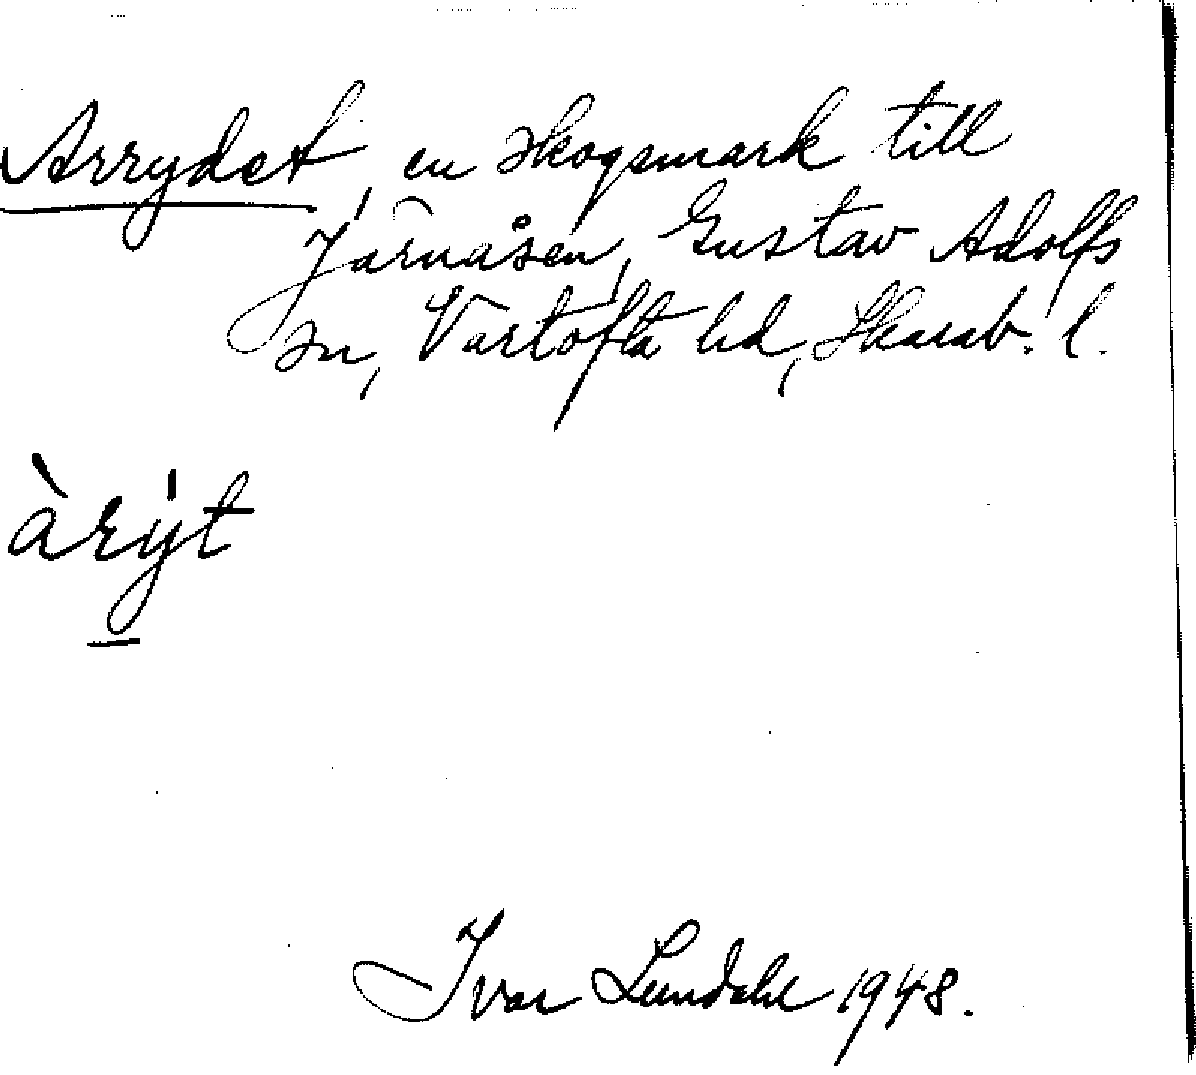 Arrydet, en skogsmark till
Järnåsen, Gustav Adolfs
sn, Vartofta hd, Skarab. l.
àrýt
Ivar Lundahl 1948.